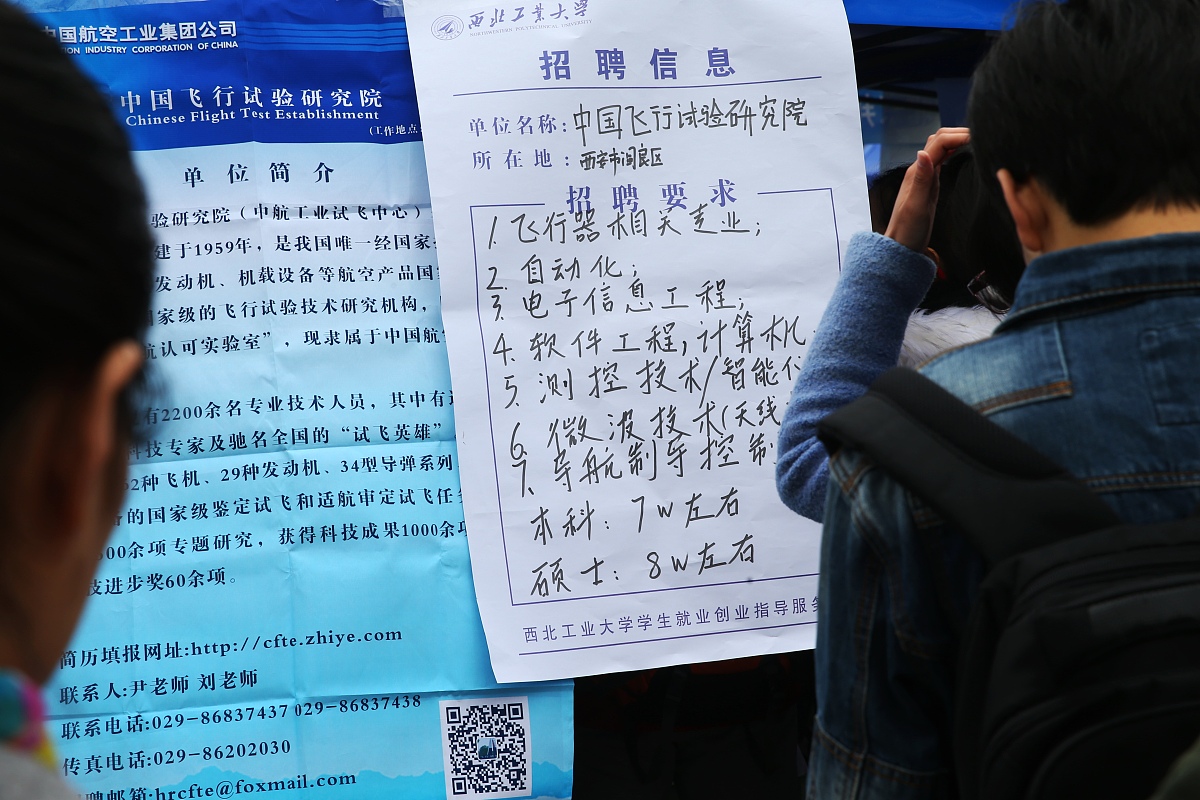 中国航空工业集团公司
INDUSTRY CORPORATION OF CHINA
中国飞行试验研究院
Chinese Flight Test Establishment
(工作地点:
单位简介
验研究院（中航工业试飞中心）
建于1959年，是我国唯一经国家
发动机、机载设备等航空产品国
国家级的飞行试验技术研究机构，
航认可实验室”，现隶属于中国航
有2200余名专业技术人员，其中有
科技专家及驰名全国的“试飞英雄”
2种飞机、29种发动机、34型导弹系列
的国家级鉴定试飞和适航审定试飞任
00余项专题研究，获得科技成果1000余项
技进步奖60余项。
简历填报网址:http://cfte.zhiye.com
联系人:尹老师 刘老师
联系电话:029-86837437 029-86837438
传真电话:029-86202030
聘邮箱:hrcfte@foxmail.com
西北工业大学
NORTHWESTERN POLYTECHNICAL UNIVERSITY
招聘信息
单位名称:中国飞行试验研究院
所在地:西安市阎良区
招聘要求
1. 飞行器相关专业;
2. 自动化;
3. 电子信息工程;
4. 软件工程,计算机
5. 测控技术/智能
6. 微波技术(天线
7. 导航制导控制
本科: 7w左右
硕士: 8w左右
西北工业大学学生就业创业指导服务